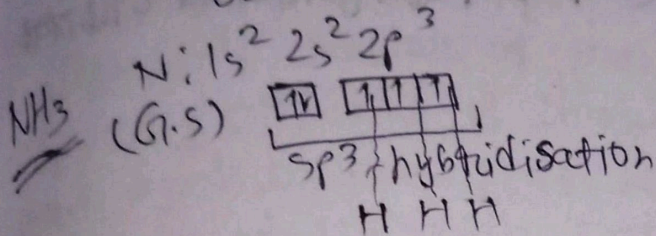 N: 1s² 2s² 2p³
NH3 (G.S) 1↓ 1 1 1
sp3 - hybridisation
H H H